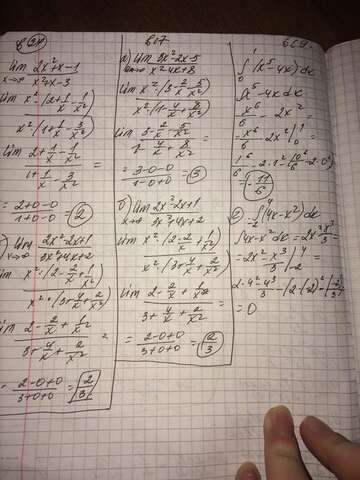 lim 2x²+x-1
x→∞ x²+x-3
lim x²(2+1/x-1/x²)
x²(1+1/x-3/x²)
lim 2+1/x-1/x²
1+1/x-3/x² =
= 2+0-0
1+0-0 = 2
lim 2x²-2x+1
x→∞ 3x²+4x+2
lim x²(2-2/x+1/x²)
x²(3+4/x+2/x²)
lim 2-2/x+1/x²
3+4/x+2/x² =
= 2-0+0
3+0+0 = 2/3
в17
а) lim 3x²-2x-5
x→∞ x²-4x+8
lim x²(3-2/x-5/x²)
x²(1-4/x+8/x²)
lim 3-2/x-5/x²
1-4/x+8/x² =
= 3-0-0
1-0+0 = 3
б) lim 2x²-2x+1
x→∞ 3x²+4x+2
lim x²(2-2/x+1/x²)
x²(3+4/x+2/x²)
lim 2-2/x+1/x²
3+4/x+2/x² =
= 2-0+0
3+0+0 = 2/3
∫(x⁵-4x)dx
∫x⁵-4x dx
x⁶/6 - 2x² =
= x⁶/6 - 2x² |
= -11/6
∫(4x-x²)dx
∫4x-x²dx = 2x²-x³/3
= 2x²-x³/3 |⁴₋₂ =
= 0